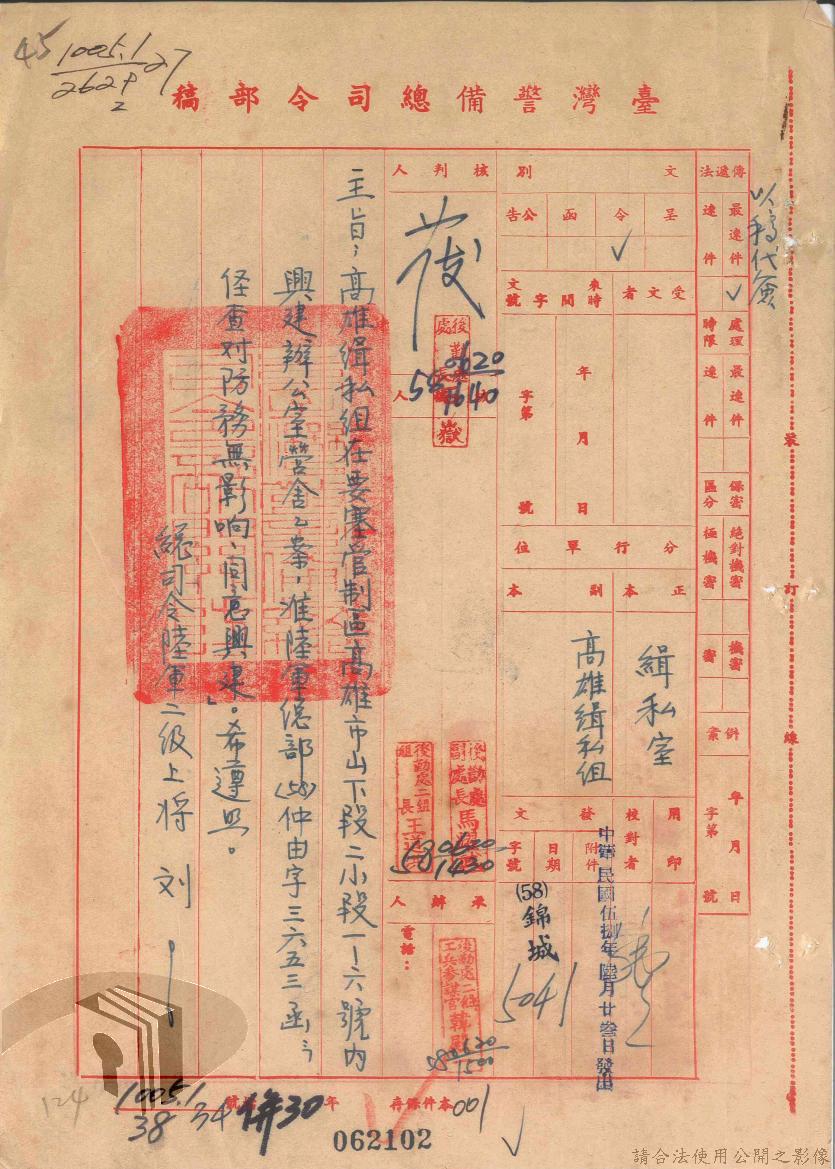 45
1005.1
262P 27
2
臺灣警備總司令部稿
以稿代簽
傳遞法
最速件
速件
處理時限
最速件
速件
保密區分
絕對機密
極機密
機密
密
併案
年 月 日
字第 號
裝 訂 線
文別
呈
令
函
公告
受文者
來文
時間
字號
年 月 日
字第 號
分行單位
正本
副本
緝私室
高雄緝私組
用印
校對者
發文
附件
日期
字號
中華民國伍捌年陸月廿叁日發出
(58)
錦城
5041
核判人
後勤處
嶽
58 0620
1640
後勤處
副處長馬
後勤處二組
組長王
58 0620
1430
承辦人
電話：
後勤處二組
工兵參謀官韓
58 0620
1500
主旨：高雄緝私組在要塞管制區高雄市山下段二小段一一六號內
興建辦公室營舍乙案，准陸軍總部(58)仲由字三六五三函：「
經查對防務無影响，同意興建。」希遵照。
總司令陸軍二級上將 劉
本件係存
年
號
001
1005.1
38 34 併30
124
062102
請合法使用公開之影像